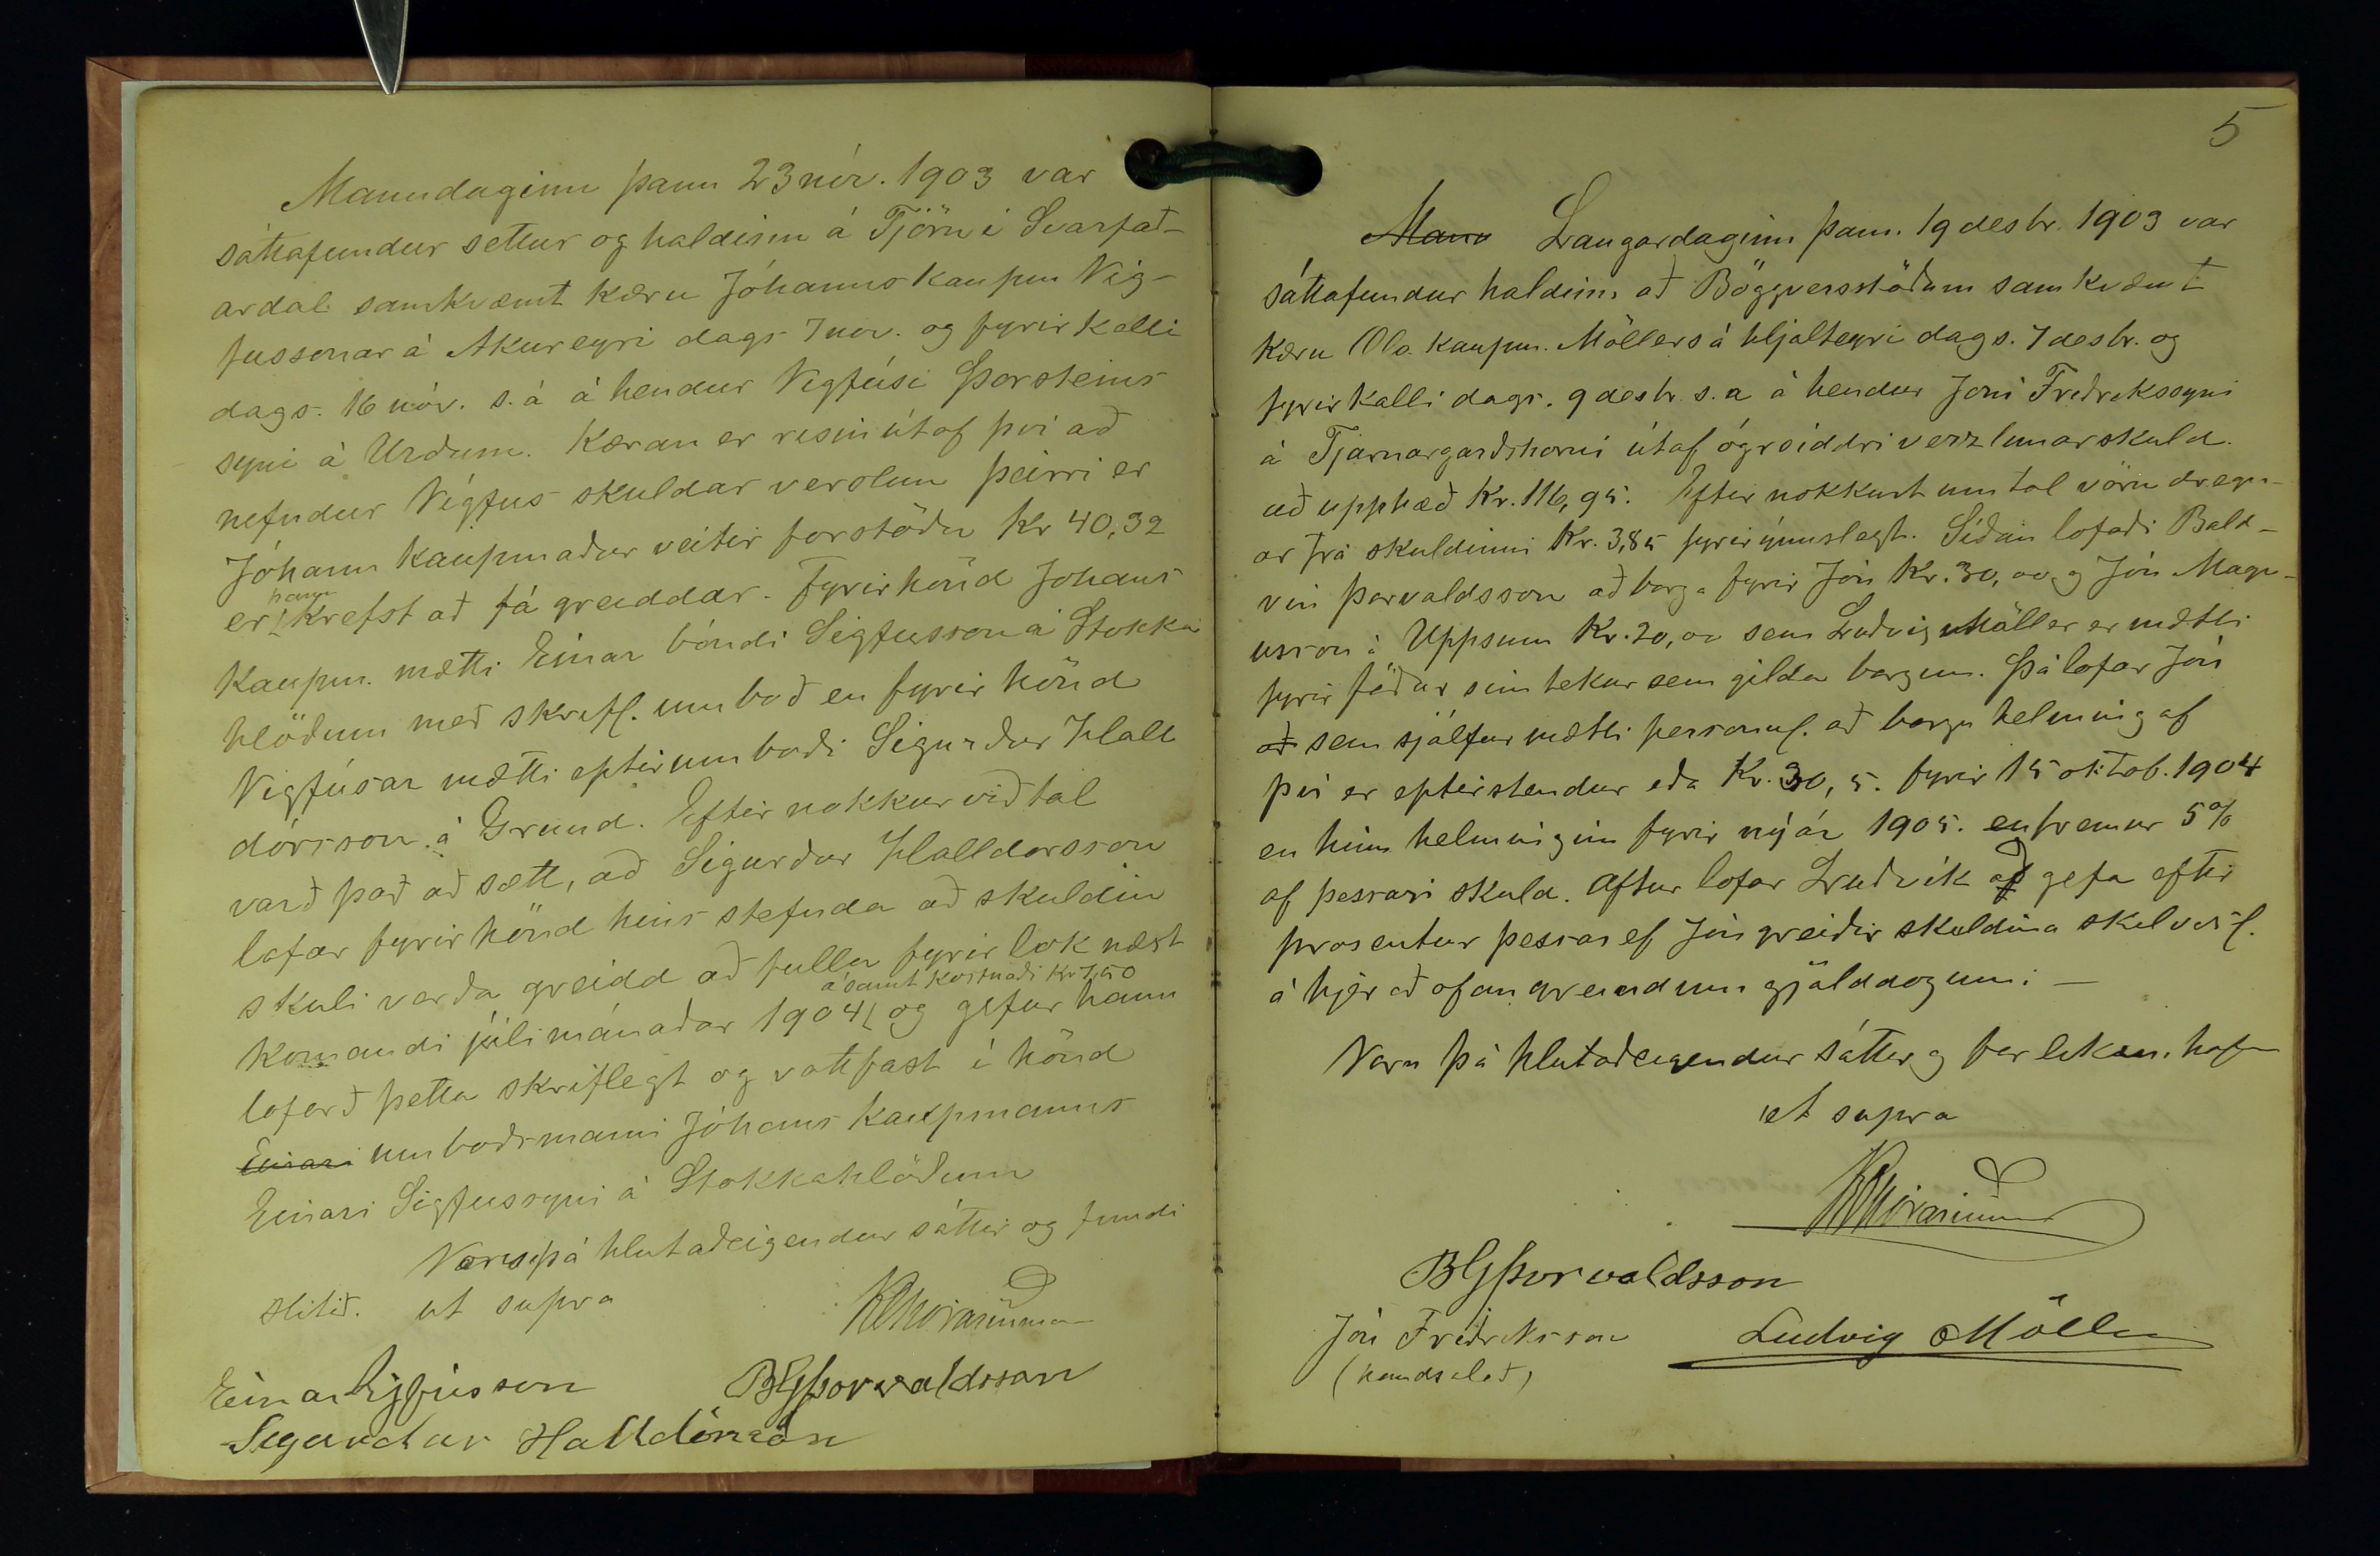 Manudaginn þann 23 nóv. 1903 var
sáttafundur settur og haldinn á Tjörn í Svarfað-
ardal samkvæmt kæru Jóhanns kaupm Vig-
fussonar á Akureyri dags 7 nov. og fyrirkalli
dags. 16 nóv. s. á á hendur Vigfúsi Þorsteins
syni á Urðum. Kæran er risin útaf því að
nefndur Vigfus skuldar verslun þeirri er
Jóhann kaupmaður veitir forstöðu Kr 40,32
er hann krefst að fá greiddar. Fyrir hönd Johans
kaupm. mætti Einar bóndi Sigfusson á Stokka
hlöðum með skrifl. umboð en fyrir hönd
Vigfúsar mætti eptir umboði Sigurður Hall
dórsson á Grund. Eftir nokkur viðtal
varð það að sætt, að Sigurður Halldorsson
lofar fyrir hönd hins stefnda að skuldin
skuli verða greidd að fullu fyrir lok næst
komandi júlimánaðar 1904 ásamt kostnaði Kr 1,50 og gefur hann
loforð þetta skriflegt og vottfast í hönd
Einari umboðsmanni Jóhans kaupmanns
Einari Sigfussyni á Stokkahlöðum
Voru þá hlutaðeigendur sáttir og fundi
slitið. ut supra
Einar Sigfússon BGÞorvaldsson
Sigurdur Halldórsson
5
Manu Laugardaginn þann. 19 desbr. 1903 var
sáttafundur haldinn að Böggversstöðum samkvæmt
kæru Ole kaupm. Möllers á Hjalteyri dags. 7 desbr. og
fyrirkalli dags. 9 desbr. s. a á hendur Joni Friðrikssyni
á Tjarnargarðshorni útaf ógreiddri verzlunarskuld.
að upphæð Kr. 116,95. Eftir nokkurt umtal vöru dregn-
ar frá skuldinni Kr. 3,85 fyrir ýmislegt. Síðan lofaði Bald-
vin Þorvaldsson að borga fyrir Jón Kr. 30,00 og Jón Magn-
usson á Uppsum Kr. 20,00 sem Luðvig Möller er mætti
fyrir föður sinn tekur sem gilda borgun. Þá lofar Jón
að sem sjálfur mætti personul. að borga helming af
því er eptirstendur eða Kr. 30,5. fyrir 15 oktob. 1904
en hinn helminginn fyrir nýár 1905. enfremur 5%
af þessari skuld. Aftur lofar Luðvík að gefa eftir
prosentur þessar ef Jón greiðir skuldina skilvísl.
á hjer að ofan greindum gjalddögum. —
Voru þá hlutaðeigendur sáttir og
ut supra
BGÞorvaldsson
Jón Friðriksson Ludvig Möller
(handsalað)